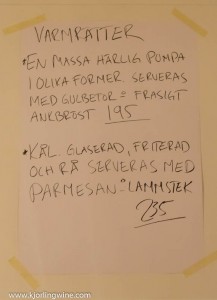 VARMRÄTTER
*EN MASSA HÄRLIG PUMPA
I OLIKA FORMER SERVERAS
MED GULBETOR & FRASIGT
ANKBRÖST 195
*KÅL GLASERAD, FRITERAD
OCH RÅ SERVERAS MED
PARMESAN & LAMMSTEK
235
www.kjorlingwine.com